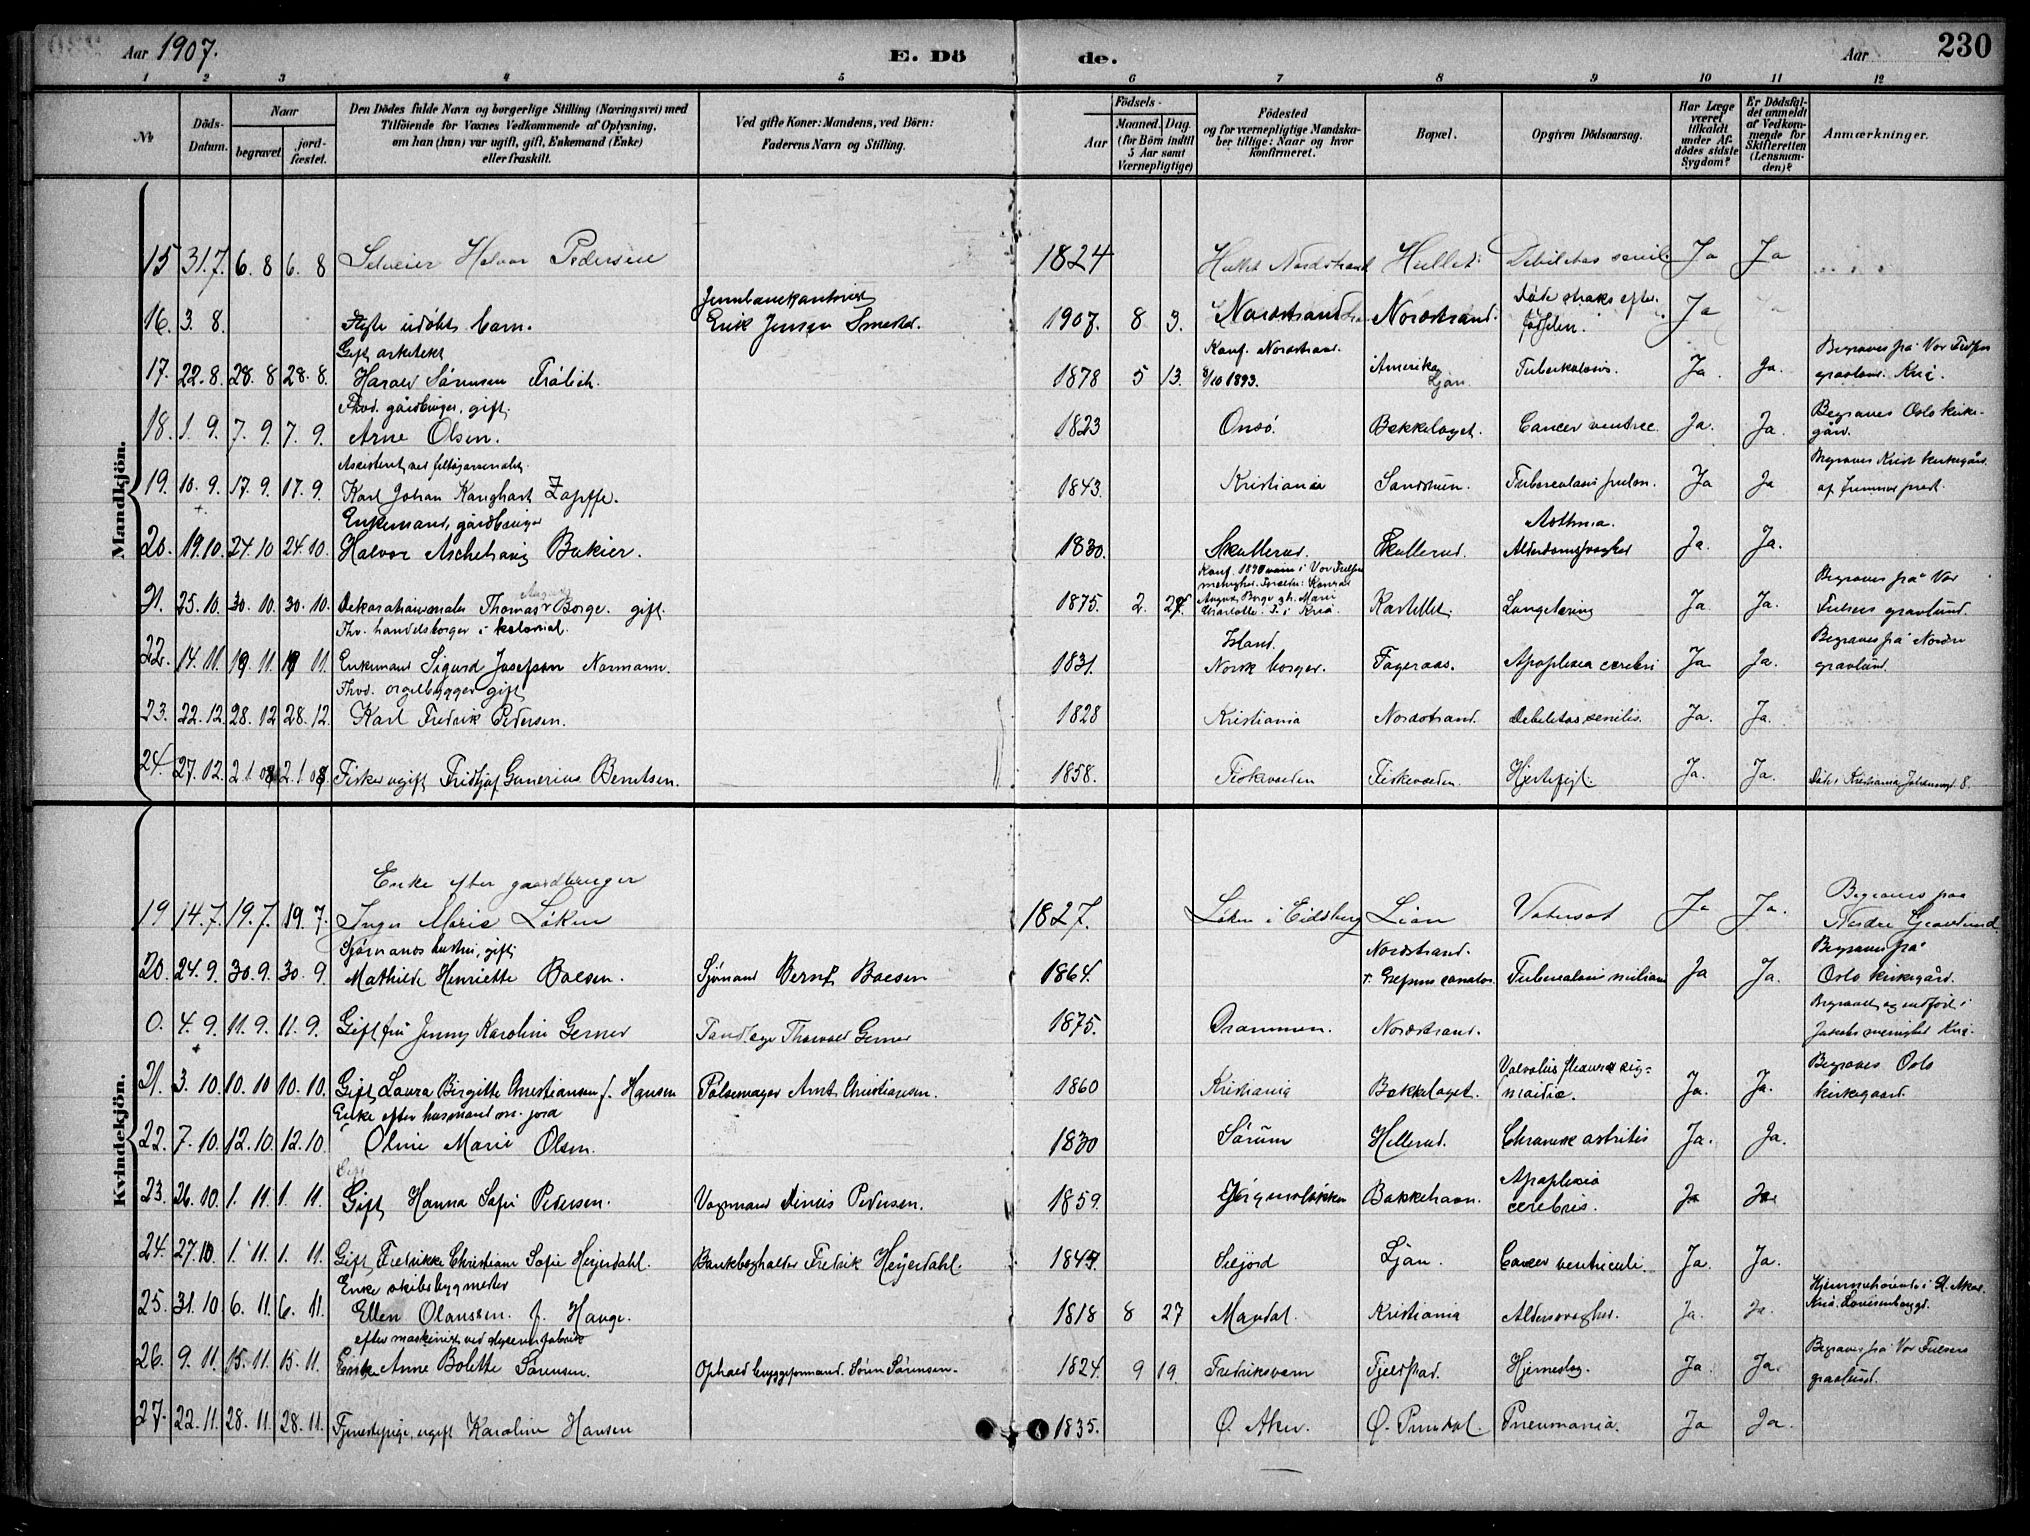 Aar 1907. E. Döde. Aar 230
1 2 3 4 5 6 7 8 9 10 11 12
No
Döds-Datum.
Naar
begravet
jordfæstet.
Den Dödes fulde Navn og borgerlige Stilling (Næringsvei) med
Tilföiende for Voxnes Vedkommende af Oplysning,
om han (hun) var ugift, gift, Enkemand (Enke)
eller fraskilt.
Ved gifte Koner: Mandens, ved Börn:
Faderens Navn og Stilling.
Födsels-
Aar
Maaned. Dag.
(for Börn indtil
5 Aar samt
Værnepligtige)
Födested
og for værnepligtige Mandska-
ber tillige: Naar og hvor
konfirmeret.
Bopæl.
Opgiven Dödsaarsag.
Har Læge
været
tilkaldt
under Af-
dödes sidste
Sygdom?
Er Dödsfal-
det anmeldt
af Vedkom-
mende for
Skifteretten
(Lensman-
den)?
Anmærkninger.
Mandkjön.
15 31.7. 6. 8 6. 8 Selveier Halvor Pedersen 1824 Hullet Nordstrand Hullet Debilitas senil. Ja Ja
16. 3. 8. udöbt barn. Erik Jensen 1907. 8 3. Nordstrand Nordstrand. Döde straks efter födslen. Ja
Gift arkitekt
17. 22. 8. 28. 8 28. 8. Harald Sörensen Frölich. 1878 5 13. Konf. Nordstrand 8/10 1893. Amerika Ljan. Tuberkulosis. Ja. Ja. Begraves på Vor Frelsers gravlund. Kria.
Fhvd. gårdbruger, gift.
18. 1. 9. 7. 9. 7. 9. Arne Olsen. 1823 Onsö. Bekkelaget. Cancer ventric. Ja. Ja. Begraves Oslo kirkegård.
Assistent ved felttöiarsenalet.
19. 10. 9. 17. 9 17. 9. Karl Johan Zapffe. 1843. Kristiania Sandstuen. Tuberculosis pulm. Ja Ja Begraves Krist kirkegård. af prest.
Enkemand, gårdbruger
20. 19.10. 24.10 24.10. Halvor Aschehoug Bakier. 1830. Skullerud. Skullerud. Asthma. Alderdomssvaghed Ja. Ja.
21. 25.10. 30.10. 30.10. Dekorationsmaler Thomas August Borge. gift. 1875. 2. 27. Kastellet. Ja. Ja. Begraves på Vor Frelsers gravlund.
Fhv. handelsborger i kolonial.
22. 14. 11. 19 11. 19 11. Enkemand Sigurd Josefson Normann. 1831. Island. Norsk borger. Fageraas. Apoplexia cerebri Ja Ja. Begraves på Nordre gravlund.
Fhvd. orgelbygger gift
23. 22.12. 28.12 28.12. Karl Fredrik Pedersen. 1828 Kristiania Nordstrand. Debilitas senilis. Ja. Ja.
24. 27.12. 2.1.08 2.1.08. Fisker ugift Fridtjof Gunerius Berntsen. 1858. Fiskevolden Fiskevolden. Hjertefeil. Ja. Ja. Död i Kristiania 8.
Kvindekjön.
Enke efter gaardbruger
19 14.7. 19.7. 19.7. Inger Marie Löken 1827. Löken i Eidsberg Lian Vatersot Ja Ja. Begraves paa Nordre Gravlund
Sjömands hustru, gift.
20. 24.9. 30.9. 30.9 Mathilde Henriette Boesen. Sjömand Bernt Boesen 1864. Nordstrand. Grefsens sanator. Tuberculosis miliaris Ja Ja. Begraves på Oslo kirkegård.
0. 4. 9. 11. 9 11. 9. Gift fru Jenny Karoline Gerner Tandlæge Thorvald Gerner 1875. Drammen. Nordstrand. Begravet og indfört i Jakobs menighed Kria.
21. 3. 10. 10.10 10.10. Gift Laura Birgitte Christiansen f. Hansen Pölsemager Arnt Christiansen. 1860 Kristiania Bækkelaget. Ja. Ja. Begraves Oslo kirkegaard.
Enke efter husmand m. jord
22. 7. 10. 12.10. 12.10. Oline Marie Olsen. 1830 Sörum Hellerud. Ja. Ja.
23. 26. 10. 1. 11. 1. 11. Gift Hanna Sofie Pedersen. Vognmand Pedersen. 1859. Bækkehavn. Apoplexia cerebris. Ja Ja
24. 27.10 1. 11. 1. 11. Gift Fredrikke Christiane Sofie Heyerdahl. Bankbogholder Fredrik Heyerdahl. Ljan. Cancer ventriculi. Ja. Ja.
Enke skibsbygmester
25. 31. 10. 6. 11. 6. 11. Ellen Olaussen. f. Hauge. 1818 8 27 Mandal. Kristiania Alderssvaghed. Ja. Ja.
efter maskinist ved
26. 9. 11. 15. 11. 15. 11. Enke Anne Bolette Sörensen. Sören Sörensen. 1824. 9 19. Fredriksværn Fjeldstad. Hjerneslag Ja. Ja. Begraves på Vor Frelsers gravlund.
27. 22. 11. 28. 11. 28. 11. Tjenestepige, ugift Karoline Hansen 1835. Ö. Aker. Pneumonia. Ja Ja.